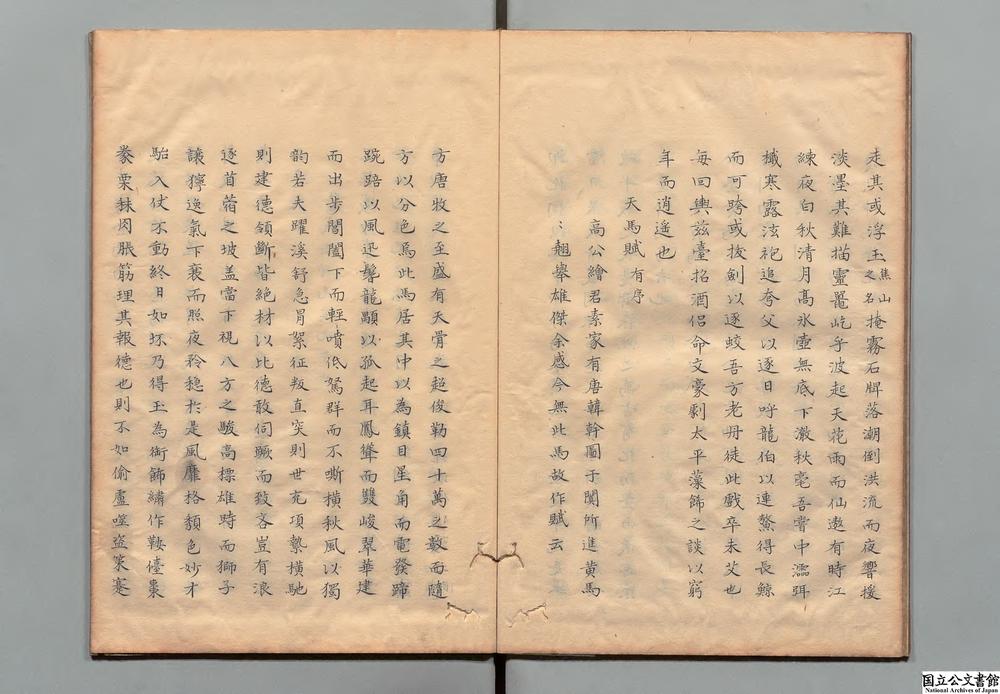 走其或浮玉焦山之名掩霧石牌落潮倒洪流而夜響援
淡墨其難描靈鼉屹乎波起天花雨而仙遨有時江
練夜白秋清月高氷壺無底下澈秋毫吾嘗中濡弭
檥寒露泫袍追夸父以逐日呼龍伯以連鰲得長鯨
而可跨或拔劍以逐蛟吾方老丹徒此戲卒未艾也
每回輿兹臺招酒侶命文豪劇太平藻飾之談以窮
年而逍遥也
天馬賦有序
高公繪君素家有唐韓幹圖于闐所進黄馬
翹舉雄傑余感今無此馬故作賦云
方唐牧之至盛有天骨之超俊勒四十萬之數而隨
方以分色焉此馬居其中以為鎮目星角而電發蹄
踠踣以風迅鬐龍顒以孤起耳鳳聳而雙峻翠華建
而出步閶闔下而輕噴低駑群而不嘶橫秋風以獨
韵若夫躍溪舒急冒絮征叛直突則世充項縶横馳
則建德領斷皆絶材以比德敢伺蹶而致吝豈有浪
逐苜蓿之坡盖當下視八方之駿高標雄時而獅子
讓獰逸氣下衰而照夜矜穏於是風靡格頽色妙才
駘入仗不動終日如坏乃得玉為銜飾繡作鞍儓棗
豢粟秣肉脹筋埋其報德也則不如偷盧噬盗策蹇
国立公文書館
National Archives of Japan